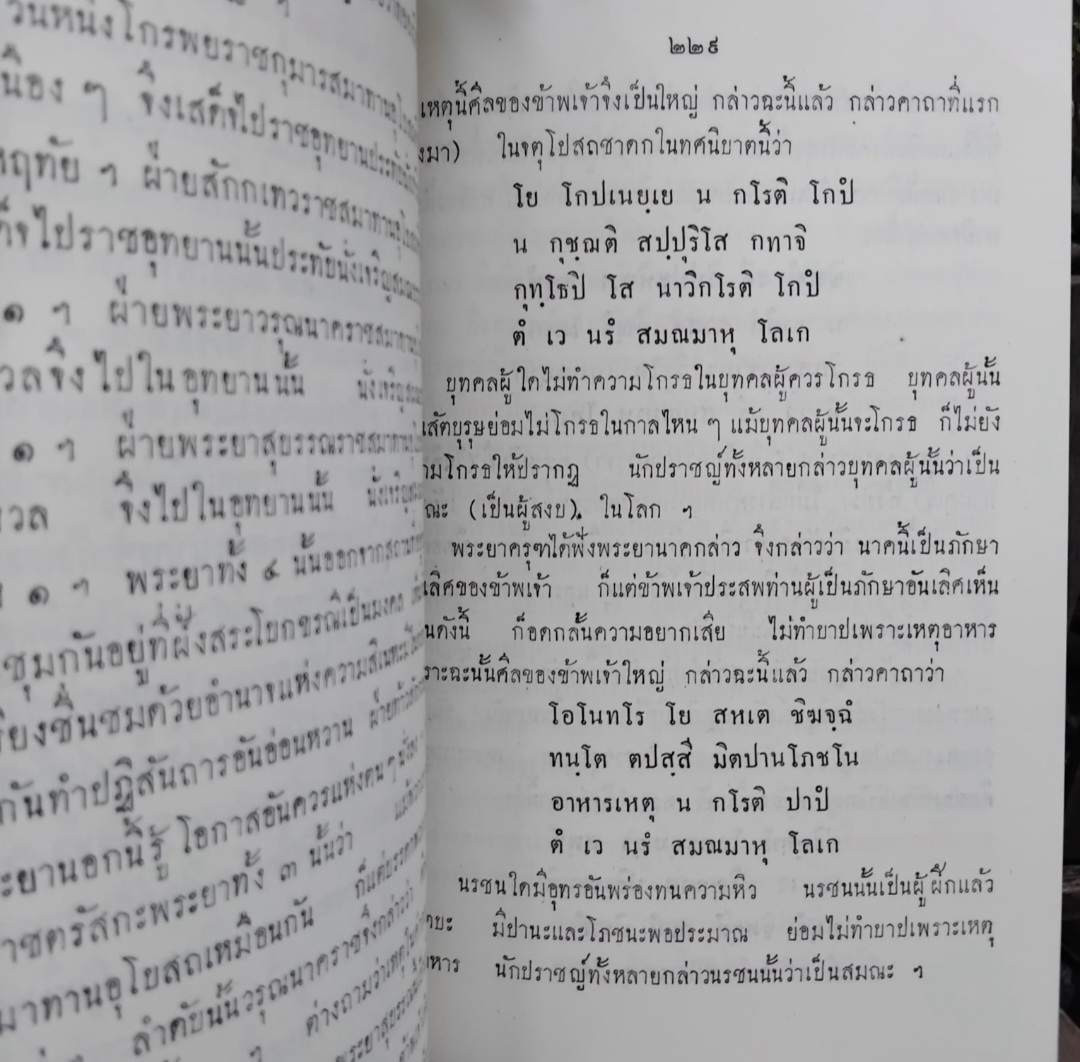 วันหนึ่งโกรพยราชกุมารสมาทานอุโ
เนือง ๆ จึงเสด็จไปราชอุทยานประทับนั่ง
หฤทัย ๆ ฝ่ายสักกเทวราชสมาทานอุโ
ด็จไปราชอุทยานนั้นประทับนั่งเจริญ
๑ ๆ ฝ่ายพระยาวรุณนาคราชสมาทาน
วลจึงไปในอุทยานนั้น นั่งเจริญ
๑ ๆ ฝ่ายพระยาสุบรรณราชสมาทาน
วล จึงไปในอุทยานนั้น นั่งเจริญ
๑ ๆ พระยาทั้ง ๔ นั้นออกจากสถานที่
ชุมกันอยู่ที่ฝั่งสระโบกขรณีเป็นมงคล
รียงชื่นชมด้วยอำนาจแห่งความสิเนหะ
กันทำปฏิสันถารอันอ่อนหวาน ฝ่ายท้าว
ะยานอกนี้รู้ โอกาสอันควรแห่งตน ๆ
าชตรัสกะพระยาทั้ง ๓ นั้นว่า
มาทานอุโบสถเหมือนกัน ก็แต่บรรดา
ลำดับนั้นวรุณนาคราชจึงกล่าวว่า
ต่างถามว่าเหตุใด
พระยาสุบรรณ
๒๒๙
เหตุนี้ศีลของข้าพเจ้าจึงเป็นใหญ่ กล่าวฉะนี้แล้ว กล่าวคาถาที่แรก
งมา) ในจตุโปสถชาดกในทศนิบาตนี้ว่า
โย โกปเนยฺเย น กโรติ โกปํ
น กุชฺฌติ สปฺปุริโส กทาจิ
กุทฺโธปิ โส นาวิกโรติ โกปํ
ตํ เว นรํ สมณมาหุ โลเก
บุทคลผู้ใดไม่ทำความโกรธในบุทคลผู้ควรโกรธ บุทคลผู้นั้น
เสัตบุรุษย่อมไม่โกรธในกาลไหน ๆ แม้บุทคลผู้นั้นจะโกรธ ก็ไม่ยัง
ามโกรธให้ปรากฏ นักปราชญ์ทั้งหลายกล่าวบุทคลผู้นั้นว่าเป็น
ณะ (เป็นผู้สงบ) ในโลก ฯ
พระยาครุฑได้ฟังพระยานาคกล่าว จึงกล่าวว่า นาคนี้เป็นภักษา
เลิศของข้าพเจ้า ก็แต่ข้าพเจ้าประสพท่านผู้เป็นภักษาอันเลิศเห็น
นดังนี้ ก็อดกลั้นความอยากเสีย ไม่ทำบาปเพราะเหตุอาหาร
ราะฉะนั้นศีลของข้าพเจ้าใหญ่ กล่าวฉะนี้แล้ว กล่าวคาถาว่า
โอโนทโร โย สหเต ชิฆจฺฉํ
ทนฺโต ตปสฺสี มิตปานโภชโน
อาหารเหตุ น กโรติ ปาปํ
ตํ เว นรํ สมณมาหุ โลเก
นรชนใดมีอุทรอันพร่องทนความหิว นรชนนั้นเป็นผู้ฝึกแล้ว
าบะ มีปานะและโภชนะพอประมาณ ย่อมไม่ทำบาปเพราะเหตุ
หาร นักปราชญ์ทั้งหลายกล่าวนรชนนั้นว่าเป็นสมณะ ฯ